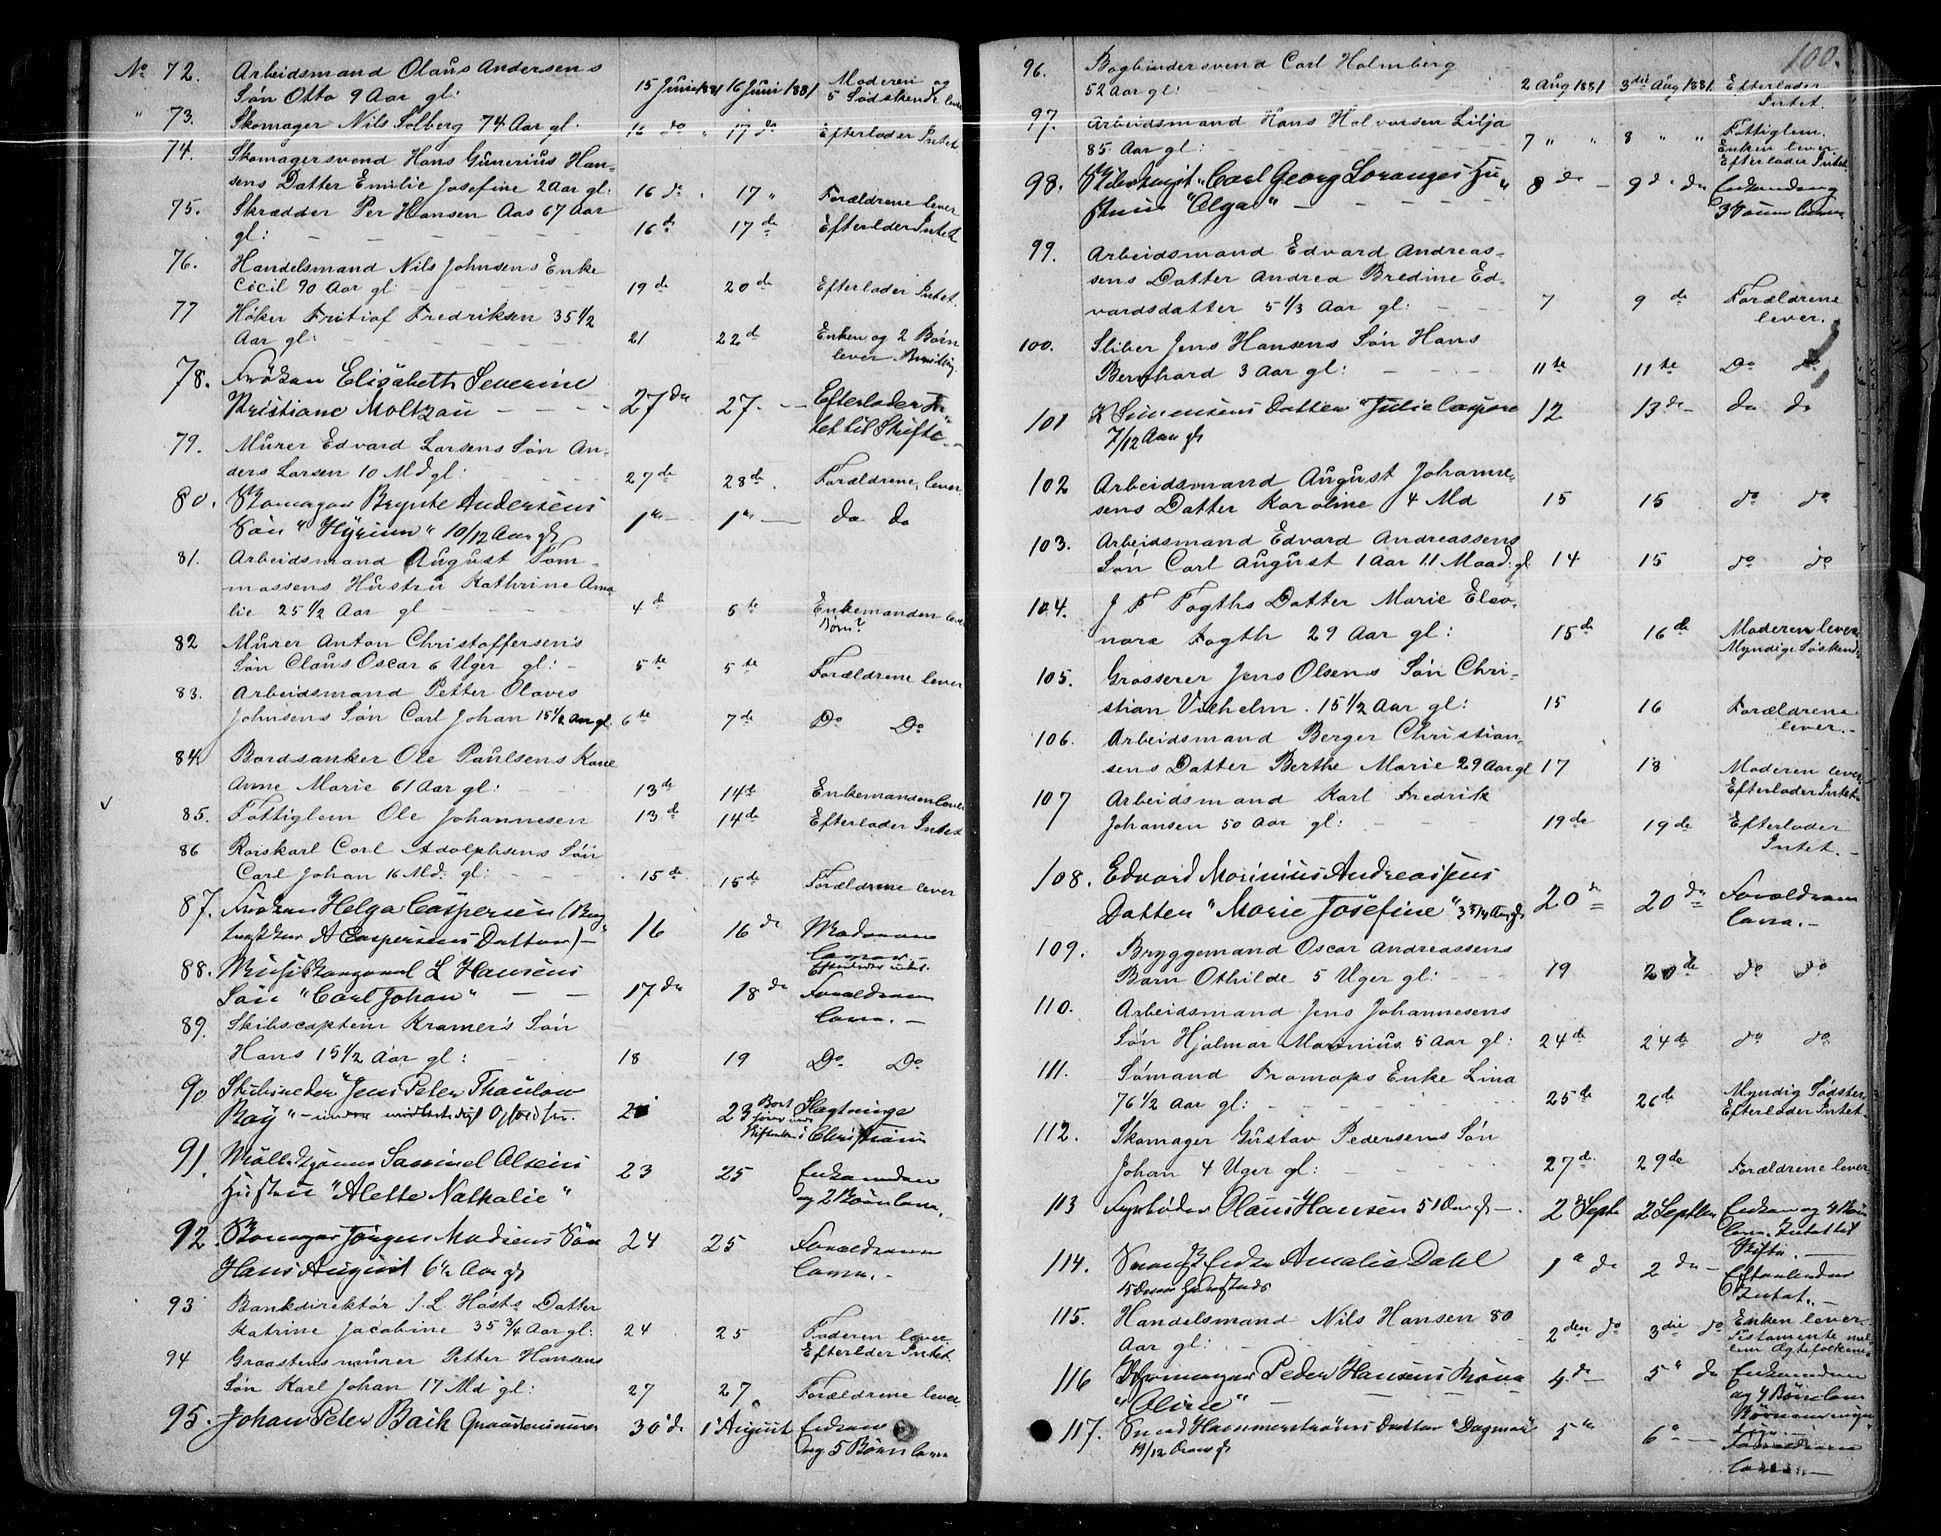 No 72. Arbeidsmand Olaus Andersens
Søn Otto 9 Aar gl: 15 Juni 1881 16 Juni 1881 Moderen og 5 Sødskende lever
" 73. Skomager Nils Solberg 74 Aar gl: 16 do " 17 do Efterlader Intet
74. Skomagersvend Hans Gunerius Han-
sens Datter Emilie Josefine 2 Aar gl: 16 do " 17 " Forældrene lever
75. Skrædder Per Hansen Aas 67 Aar
gl: 16 de 17 de Efterlader Intet
76. Handelsmand Nils Johnsens Enke
Cicil 90 Aar gl: 19 de 20 de Efterlader Intet.
77 Høker Fritiof Fredriksen 35 1/2
Aar gl: 21 22 d Enken og 2 Børn
lever
78. Frøken Elisabeth Severine
Kristiane Moltzau 27 de 27. Efterlader In-
tet til Skifte.
79. Murer Edvard Larsens Søn An-
ders Larsen 10 Md gl: 27 de 28 de Forældrene lever
80. Skomager Brynte Andersens
Søn "Hyrium" 10/12 Aar gl 1 1 do do
81. Arbeidsmand August Tom-
massens Hustru Kathrine Ama-
lie 25 1/2 Aar gl 4 de 5 te Enkemanden lever
Børn?
82 Murer Anton Christoffersens
Søn Claus Oscar 6 Uger gl: 5 te 5 te Forældrene lever
83. Arbeidsmand Petter Olaves
Johnsens Søn Carl Johan 15 1/2 Aar gl. 6 te 7 de Do Do
84. Bordsanker Ole Paulsens Kone
Anne Marie 61 Aar gl: 13 de 14 de Enkemanden lever
85. Fattiglem Ole Johannesen 13 de 14 de Efterlader Intet
86 Rorskarl Carl Adolphsens Søn
Carl Johan 16 Md: gl: 15 de 15 de Forældrene lever
87. Frøken Helga Caspersen
A Caspersens Datter) 16 16 de Moderen
lever.
Efterlader intet.
88. L Hansens
Søn "Carl Johan" 17 de 18 de Forældrene
lever.
89. Skibscaptein Kramer's Søn
Hans 15 1/2 Aar gl: 18 19 Do Do
90 Jens Peter Thaulow
Bay 23 Slægtninge
i Christiania
91. Samuel Olsens
Hustru "Alette Nathalie" 23 25 Enkemanden
og 2 Børn lever.
92. Skomager Jørgen Madsens Søn
Hans August 6 1/2 Aar gl 24 25 Forældrene
lever.
93 Bankdirektør J. L. Høsts Datter
Katrine Jacobine 35 3/4 Aar gl: 24 25 Faderen lever.
Efterlder Intet
94 Graastensmurer Petter Hansens
Søn Karl Johan 17 Md gl: 27 27 Forældrene lever
95. Johan Peter Bach Graastensmurer 30 de 1 August Enken
og 5 Børn lever
100.
96. Bogbindersvend Carl Holmberg
52 Aar gl: 2 Aug 1881 3die Aug 1881. Efterlader
Intet.
97. Arbeidsmand Hans Halvorsen Lilja
85 Aar gl: 7 " " 8 " " Fattiglem.
Enken lever.
Efterlader Intet
98. Carl Georg Loranges Hu-
strue "Olga" 8 de 9 de do Enkemand og
3 Børn lever
99. Arbeidsmand Edvard Andreas-
sens Datter Andrea Bredine Ed-
vardsdatter 5 1/3 Aar gl: 7 9 de Forældrene
lever.
100. Sliber Jens Hansens Søn Hans
Bernhard 3 Aar gl: 11 te 11 te Do
101 K Simensens Datter "Julie Caspare
7/12 Aar gl 12 13 de do do
102 Arbeidsmand August Johanne-
sens Datter Karoline 4 Md 15 15 do do
103. Arbeidsmand Edvard Andreassens
Søn Carl August 1 Aar 11 Maad: gl 14 15 do do
104. J F Fogths Datter Marie Eleo-
nora Fogth 29 Aar gl: 15 de 16 de Moderen lever
Myndige Søskende
105. Grosserer Jens Olsens Søn Chri-
stian Vilhelm. 15 1/2 Aar gl: 15 16 Forældrene
lever.
106. Arbeidsmand Berger Christian-
sens Datter Berthe Marie 29 Aar gl 17 18 Moderen lever
Efterlader Intet
107 Arbeidsmand Karl Fredrik
Johansen 50 Aar gl: 19 de 19 de Efterlader
Intet.
108. Edvard Marinius Andreassens
Datter "Marie Josefine" 20 de 20 de Forældrene
lever.
109. Bryggemand Oscar Andreassens
Barn Othilde 5 Uger gl: 19 20 de do do
110. Arbeidsmand Jens Johannesens
Søn Hjalmar Marinius 5 Aar gl: 24 de 24 de do do
111. Sømand Tromaps Enke Lina
76 1/2 Aar gl: 25 de 26 de Myndig Sødster
Efterlader Intet
112. Skomager Gustav Pedersens Søn
Johan 4 Uger gl: 27 d. 29 de Forældrene lever
113 Fyrbøder Olaus Hansen 51 Aar gl 2 Septe 2 Septbr Enken og 4 Børn
lever. Intet til
Skifte.
114. Enke Amalie Dahl 1 " do 2 do Efterlader
Intet.
115. Handelsmand Nils Hansen 80
Aar gl: 2 den do 3die do Enken lever.
Testamente mel-
lem Ægtefolkene
116 Peder Hansens Kone
"Oline" 4 de 5 " do Enkemanden
og 4 Børn lever
117. Smed Hammerstrøms Datter "Dagmar"
19/12 Aar gl 5 " 6 " Forældrene
lever.